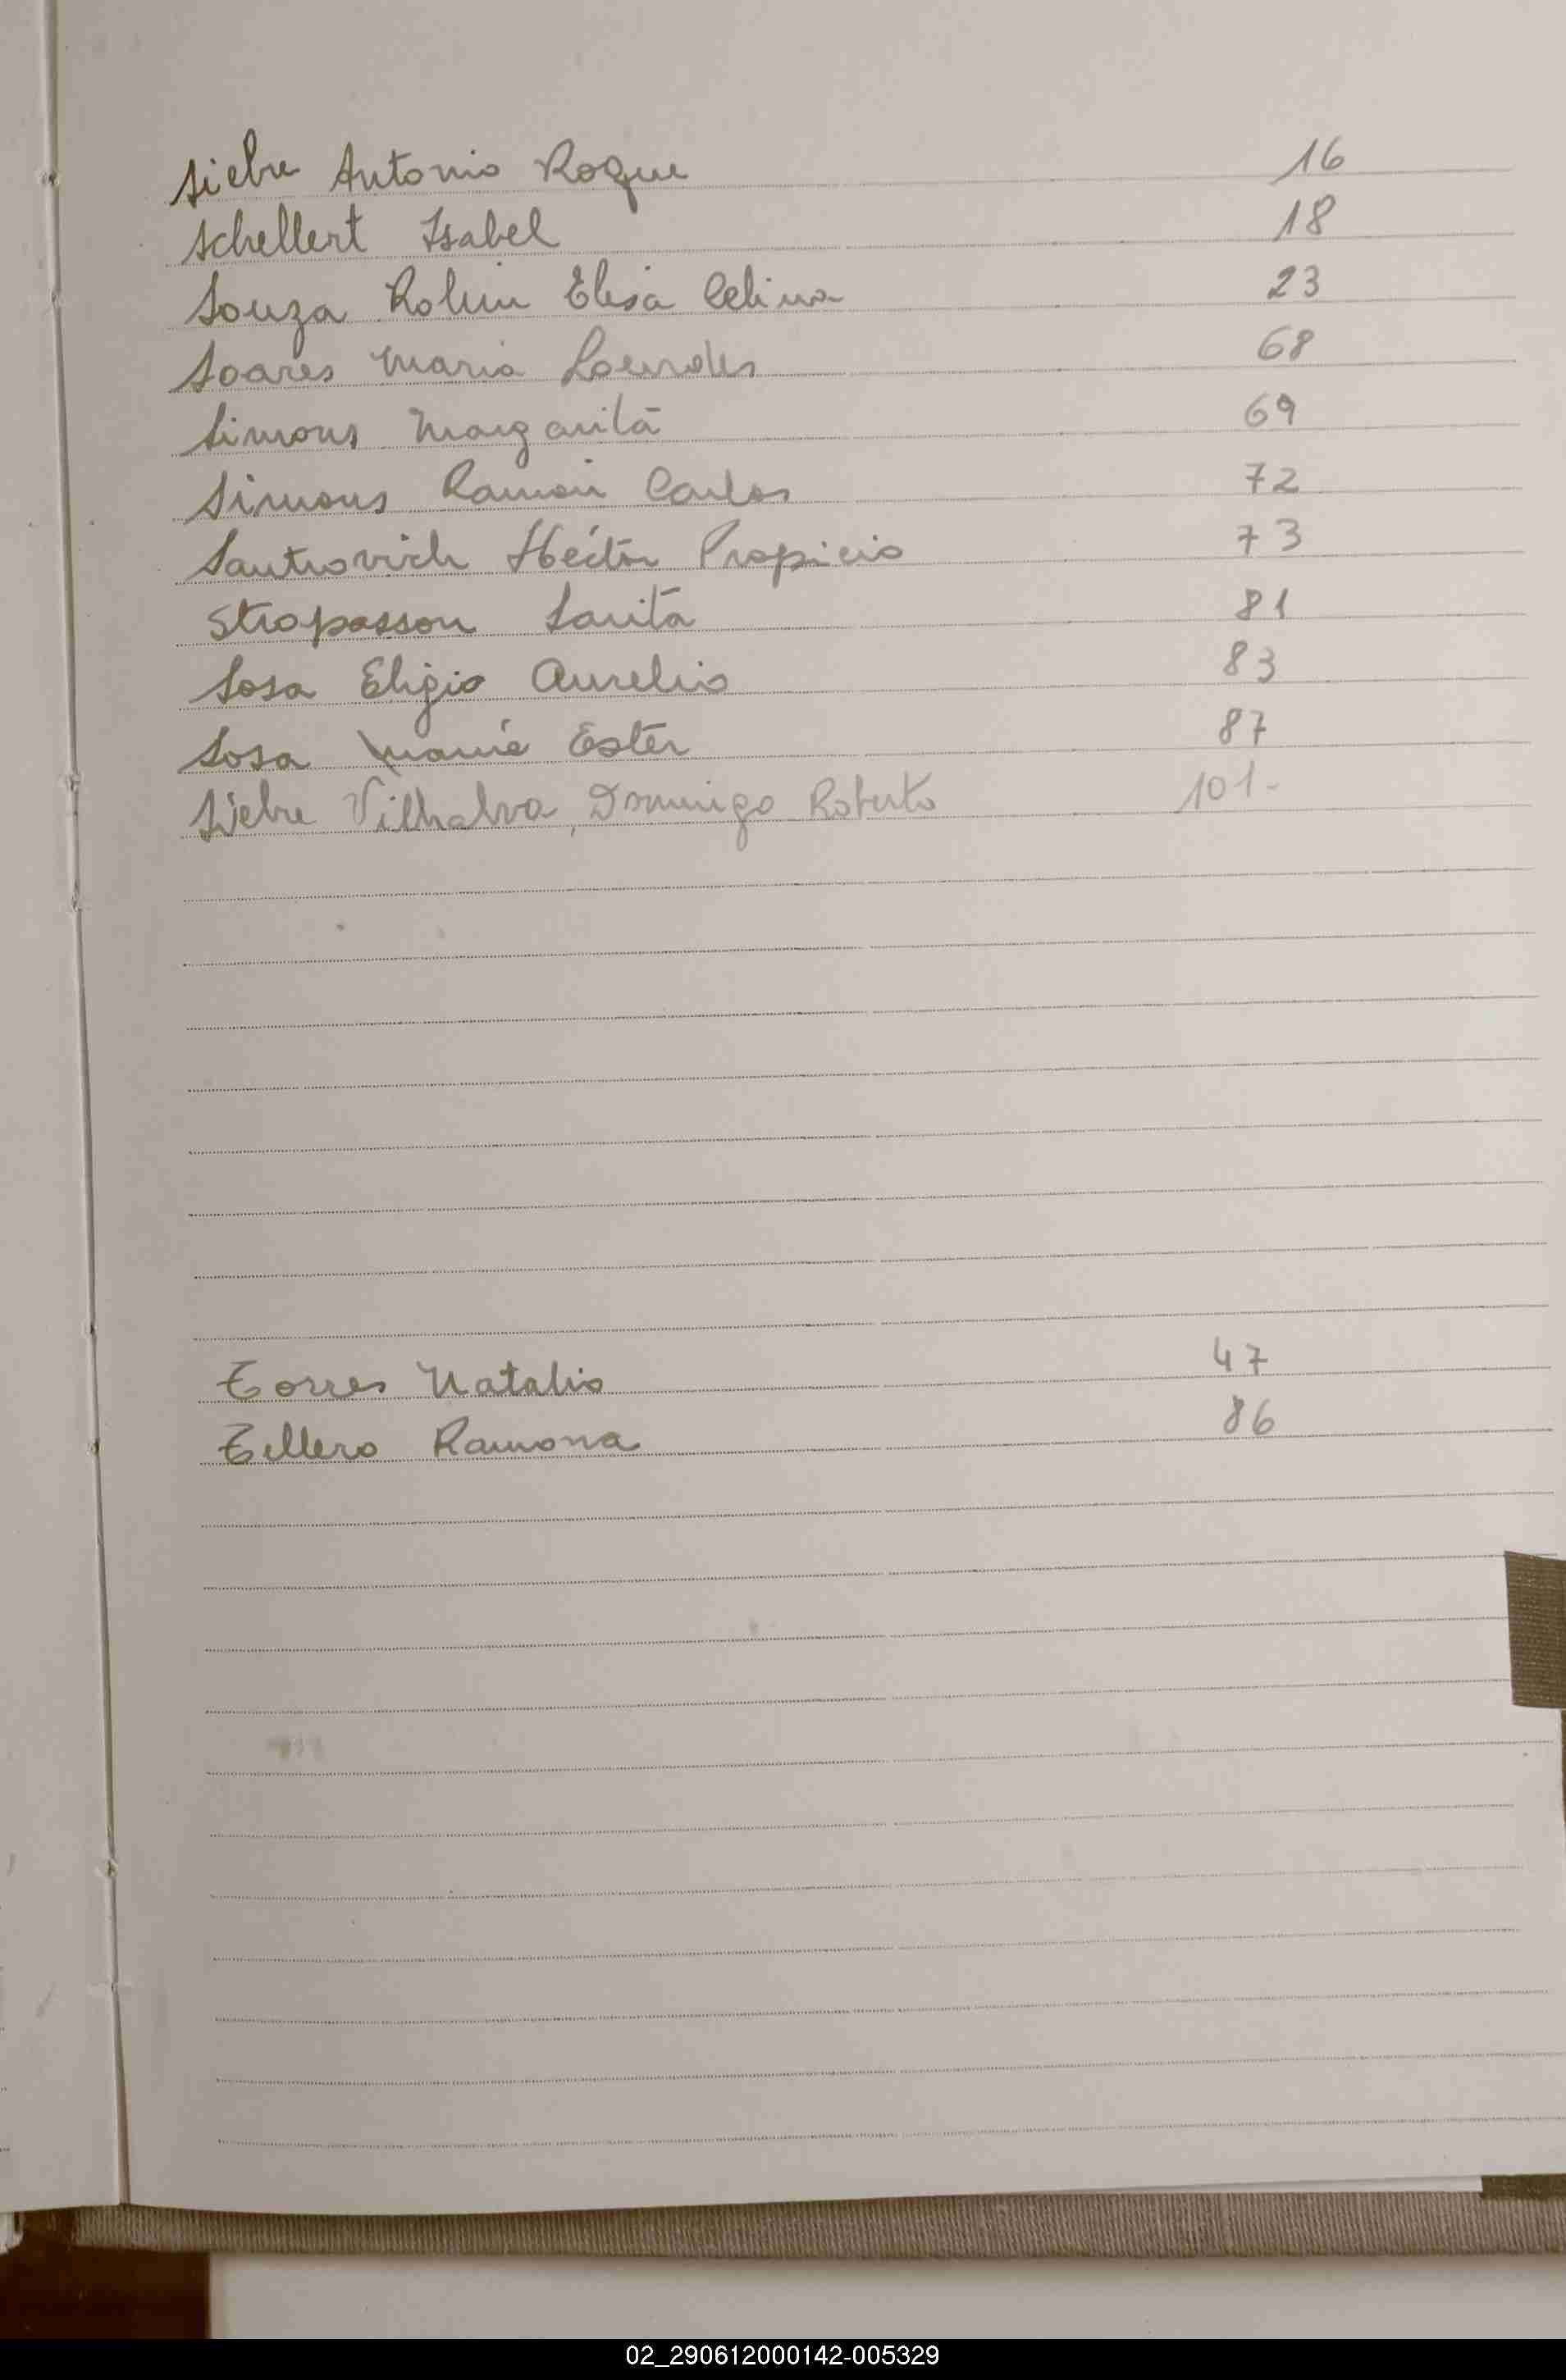 Siebre Antonio Roque 16
Schellert Isabel 18
Souza Rolim Elisa Celina 23
Soares Maria Lourdes 68
Simons Margarita 69
Simons Ramon Carlos 72
Santrovich Héctor Propicio 73
Stropasson Sarita 81
Sosa Eligio Aurelio 83
Sosa María Ester 87
Siebre Vilhalva, Domingo Roberto 101-
Torres Natalio 47
Tellero Ramona 86
02_290612000142-005329